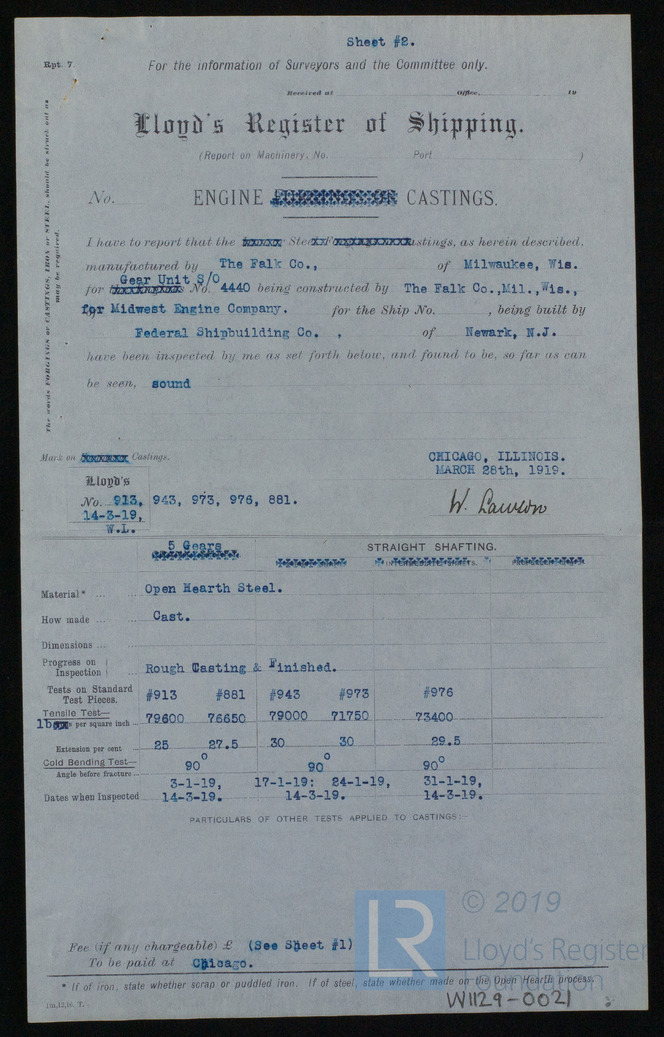 Sheet #2.
Rpt. 7.
For the information of Surveyors and the Committee only.
Received at Office, 19
Lloyd's Register of Shipping.
(Report on Machinery, No. Port )
No. ENGINE CASTINGS.
The words FORGINGS or CASTINGS, IRON or STEEL, should be struck out as
may be required.
I have to report that the Steel Castings, as herein described,
manufactured by The Falk Co., of Milwaukee, Wis.
Gear Unit S/O
for No. 4440 being constructed by The Falk Co.,Mil.,Wis.,
for Midwest Engine Company. for the Ship No. , being built by
Federal Shipbuilding Co. , of Newark, N.J.
have been inspected by me as set forth below, and found to be, so far as can
be seen, sound
Mark on Castings.
CHICAGO, ILLINOIS.
MARCH 28th, 1919.
Lloyd's
No. 913, 943, 973, 976, 881.
14-3-19,
W.L.
W. Lawson
5 Gears
STRAIGHT SHAFTING.
Material* ... ... Open Hearth Steel.
How made ... ... Cast.
Dimensions ... ...
Progress on
Inspection ... Rough Casting & Finished.
Tests on Standard
Test Pieces. #913 #881 #943 #973 #976
Tensile Test—
lbs per square inch ... 79600 76650 79000 71750 73400
Extension per cent 25 27.5 30 30 29.5
Cold Bending Test—
Angle before fracture ... 90° 90° 90°
3-1-19, 17-1-19: 24-1-19, 31-1-19,
Dates when Inspected 14-3-19. 14-3-19. 14-3-19.
PARTICULARS OF OTHER TESTS APPLIED TO CASTINGS:—
Fee (if any chargeable) £ (See Sheet #1)
To be paid at Chicago.
* If of iron, state whether scrap or puddled iron. If of steel, state whether made on the Open Hearth process.
W1129-0021
LR
© 2019
Lloyd's Register
Foundation